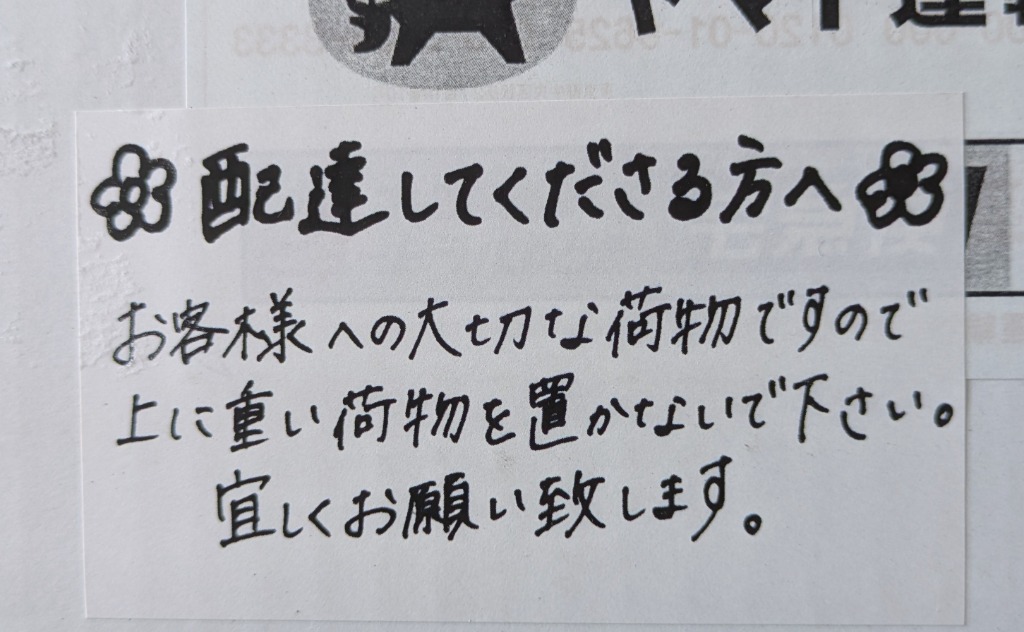 ヤマト運
配達してくださる方へ
お客様への大切な荷物ですので
上に重い荷物を置かないで下さい。
宜しくお願い致します。